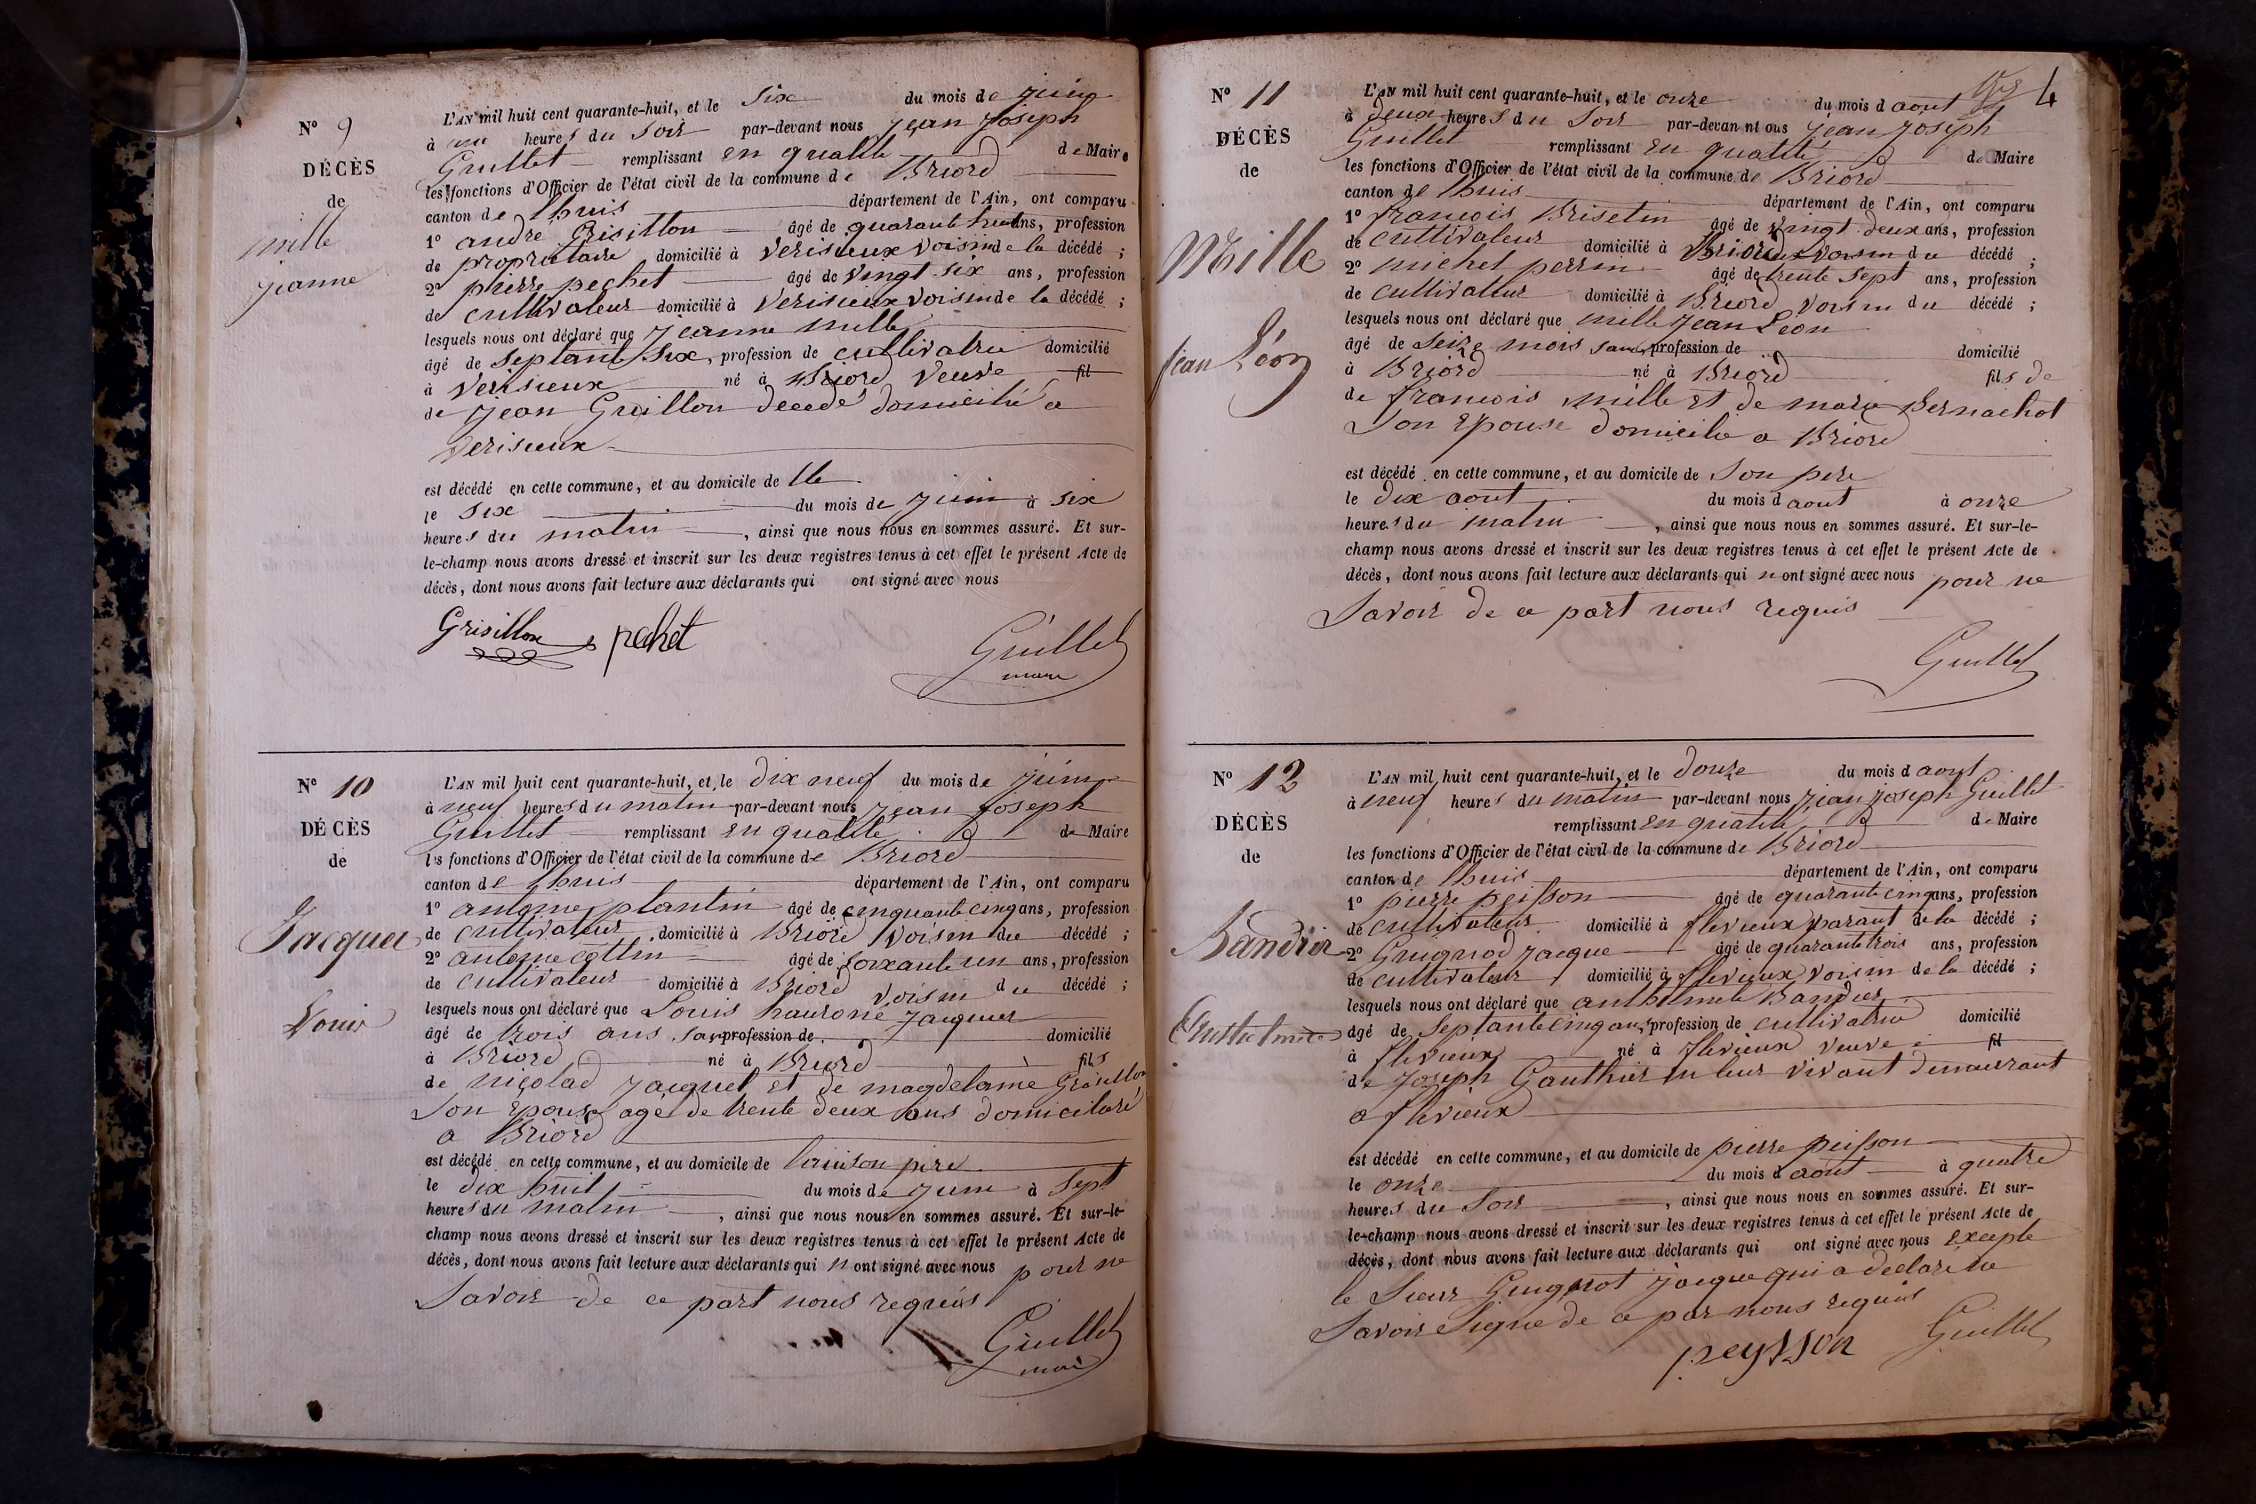 N° 9
DÉCÈS
de
mille
jeanne
L'AN mil huit cent quarante-huit, et le Six du mois de juin
à un heures du Soir par-devant nous Jean Joseph
Guillet remplissant en qualité de Maire
les fonctions d'Officier de l'état civil de la commune de Briord
canton de lhuis département de l'Ain, ont comparu
1° andré Grisillon âgé de quarante huit ans, profession
de propriétaire domicilié à Verisieux voisin de la décédé ;
2° pierre pechet âgé de vingt six ans, profession
de cultivateur domicilié à Verisieux voisin de la décédé ;
lesquels nous ont déclaré que jeanne mille
âgé de septante six, profession de cultivatrice domicilié
à Verisieux né à Briord Veuve fil
de jean Grisillon decedé domicilié a
Verisieux
est décédé en cette commune, et au domicile de lle
le Six du mois de juin à six
heures du matin , ainsi que nous nous en sommes assuré. Et sur-
le-champ nous avons dressé et inscrit sur les deux registres tenus à cet effet le présent Acte de
décès, dont nous avons fait lecture aux déclarants qui ont signé avec nous
Grisillon pechet Guillet
maire
N° 10
DÉCÈS
de
Jacquer
Louis
L'AN mil huit cent quarante-huit, et le dix neuf du mois de juin
à neuf heures du matin par-devant nous jean joseph
Guillet remplissant en qualité de Maire
les fonctions d'Officier de l'état civil de la commune de Briord
canton de lhuis département de l'Ain, ont comparu
1° antoine plantin âgé de cinquante cinq ans, profession
de cultivateur domicilié à Briord voisin du décédé ;
2° antoine cottin âgé de soixante un ans, profession
de cultivateur domicilié à Briord voisin du décédé ;
lesquels nous ont déclaré que Louis jacquer
âgé de trois ans sans profession de domicilié
à Briord né à Briord fils
de nicolad jacquet et de magdelaine Grisillon
Son Epouse agé de trente deux ans domicilié
a Briord
est décédé en cette commune, et au domicile de son pere
le dix huit du mois de juin à sept
heures du matin , ainsi que nous nous en sommes assuré. Et sur-le-
champ nous avons dressé et inscrit sur les deux registres tenus à cet effet le présent Acte de
décès, dont nous avons fait lecture aux déclarants qui n ont signé avec nous pour ne
Savoir de ce part nous requis
Guillet
maire
4
N° 11
DÉCÈS
de
Mille
jean Léon
L'AN mil huit cent quarante-huit, et le onze du mois d aout
à deux heures du Soir par-devant nous jean joseph
Guillet remplissant en qualité de Maire
les fonctions d'Officier de l'état civil de la commune de Briord
canton de lhuis département de l'Ain, ont comparu
1° francois Brisetin âgé de vingt deux ans, profession
de cultivateur domicilié à Briord voisin du décédé ;
2° michel perrin âgé de trente sept ans, profession
de cultivateur domicilié à Briord voisin du décédé ;
lesquels nous ont déclaré que mille jean Léon
âgé de Seize mois sans profession de domicilié
à Briord né à Briord fils de
de francois mille et de marie Bernachot
Son Epouse domicilié a Briord
est décédé en cette commune, et au domicile de Son pere
le dix aout du mois d aout à onze
heures du matin , ainsi que nous nous en sommes assuré. Et sur-le-
champ nous avons dressé et inscrit sur les deux registres tenus à cet effet le présent Acte de
décès, dont nous avons fait lecture aux déclarants qui n ont signé avec nous pour ne
Savoir de ce part nous requis
Guillet
N° 12
DÉCÈS
de
Bandier
L'AN mil huit cent quarante-huit, et le douze du mois d aout
à neuf heures du matin par-devant nous jean joseph Guillet
remplissant en qualité de Maire
les fonctions d'Officier de l'état civil de la commune de Briord
canton de lhuis département de l'Ain, ont comparu
1° pierre peisson âgé de quarante cinq ans, profession
de cultivateur domicilié à flevieux parant de la décédé ;
2° Guignod jacque âgé de quarante trois ans, profession
de cultivateur domicilié à flevieux voisin de la décédé ;
lesquels nous ont déclaré que anthelmete Bandier
âgé de Septante cinq ans, profession de cultivatrice domicilié
à flevieux né à flevieux veuve fil
de joseph Gauthier en leur vivant demeurant
a flevieux
est décédé en cette commune, et au domicile de pierre peisson
le onze du mois d aout à quatre
heures du Soir , ainsi que nous nous en sommes assuré. Et sur-
le-champ nous avons dressé et inscrit sur les deux registres tenus à cet effet le présent Acte de
décès, dont nous avons fait lecture aux déclarants qui ont signé avec nous Excepte
le Sieur Guignot jacque qui a declaré ne
Savoir Signe de ce par nous requis
peysson Guillet